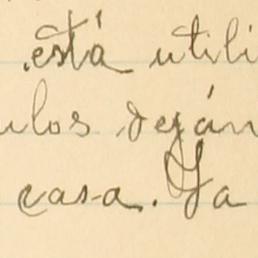 está utili
ulos deján
casa. Ya